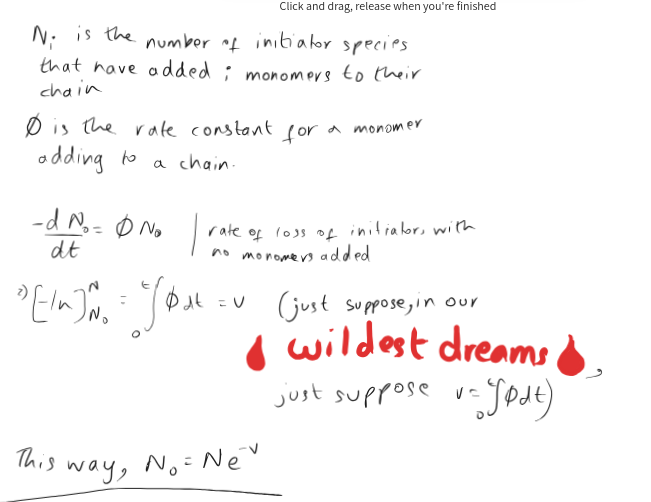 Click and drag, release when you're finished
Nᵢ is the number of initiator species
that have added i monomers to their
chain
Ø is the rate constant for a monomer
adding to a chain.
-dN₀/dt = Ø N₀ | rate of loss of initiators with
no monomers added
2) [-ln]ᴺ_N₀ = ₀ᵗ∫ Ø dt = v (just suppose, in our
wildest dreams,
just suppose v = ₀ᵗ∫Ødt)
This way, N₀ = Ne⁻ᵛ